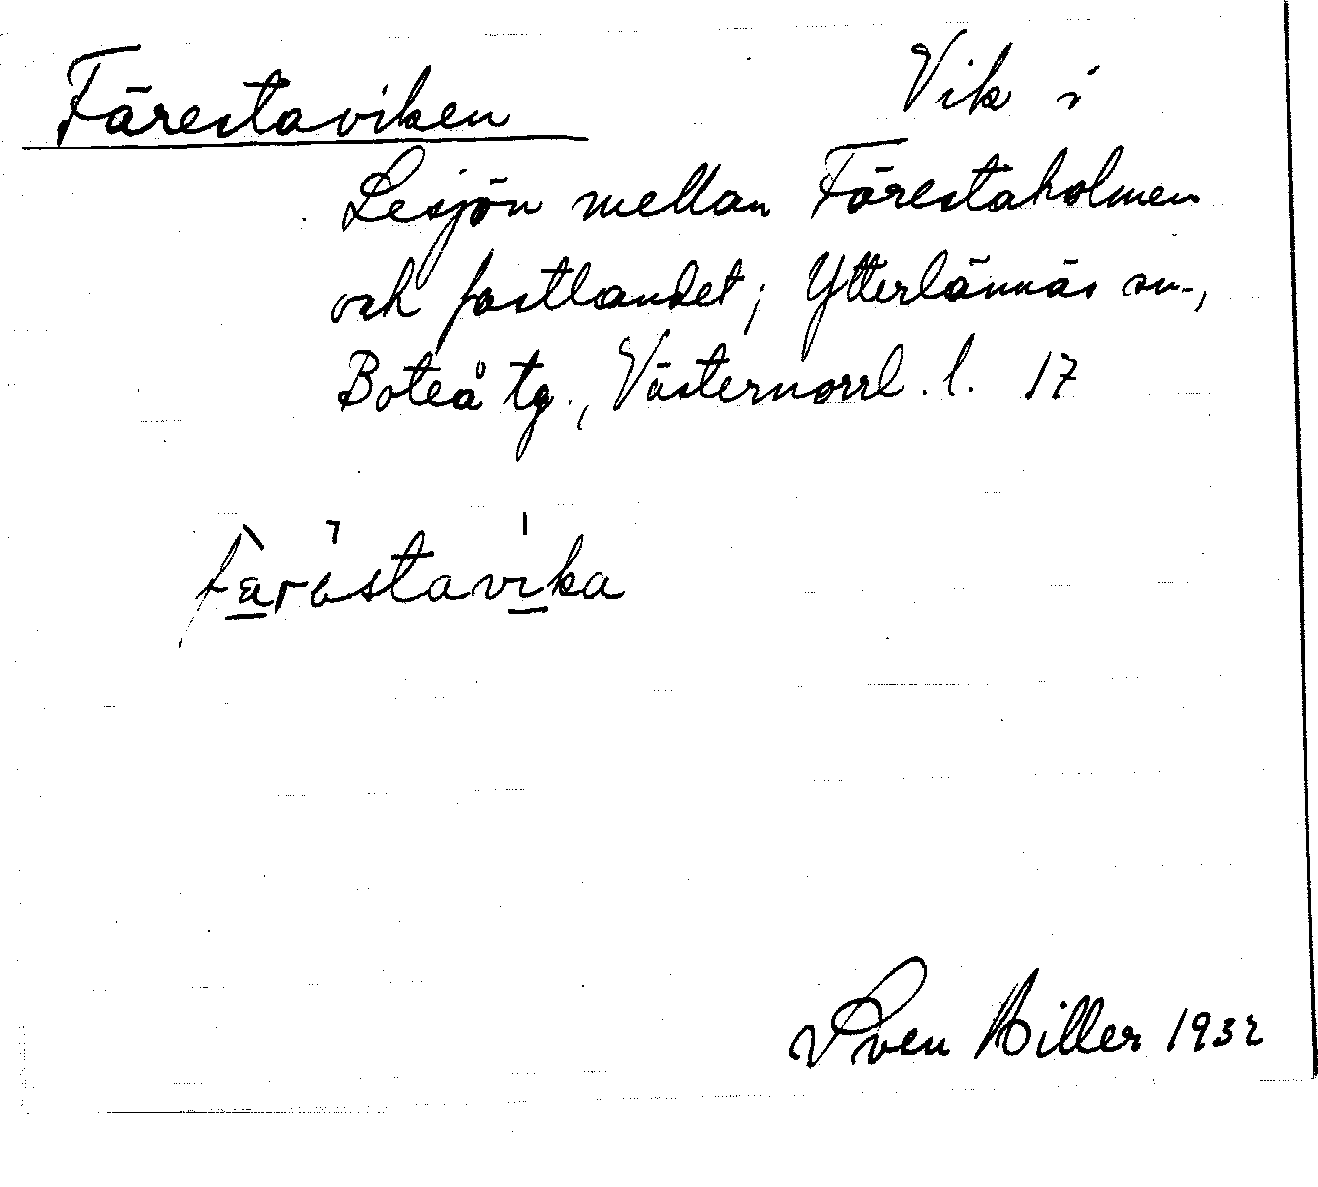 Färestaviken Vik i
Lesjön mellan Färestaholmen
och fastlandet; Ytterlännäs sn.,
Boteå tg., Västernorrl. l. 17
färästavika
Sven Hiller 1932